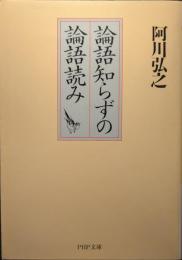 阿川弘之
論語知らずの
論語読み
PHP文庫